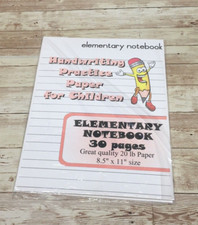 elementary notebook
Handwriting
Practice
Paper
for Children
ELEMENTARY
NOTEBOOK
30 pages
Great quality 20 lb Paper
8.5" x 11" size